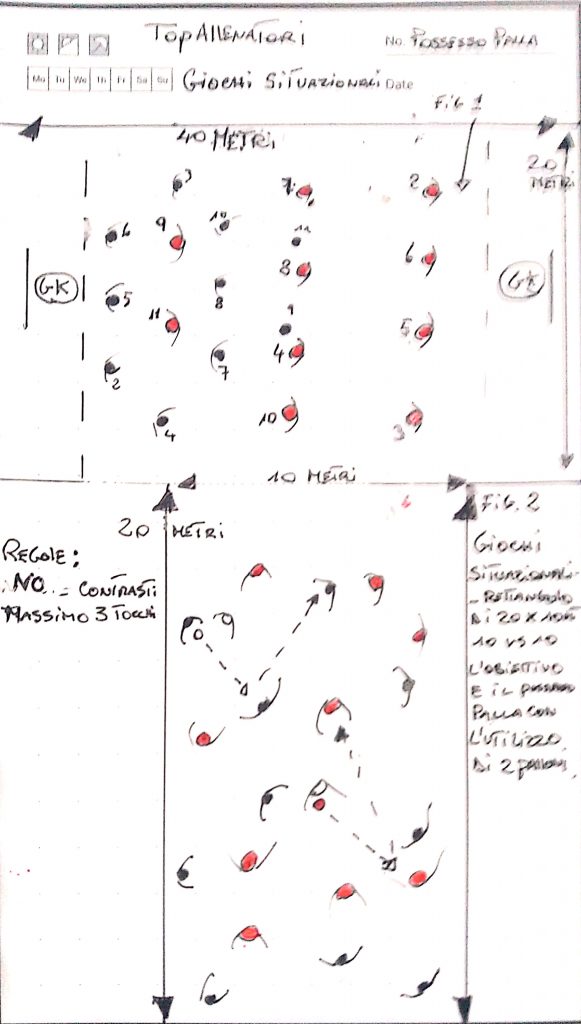 TopAllenatori
No. Possesso Palla
Mo Tu We Th Fr Sa Su Giochi Situazionali Date
Fig 1
40 Metri
20 Metri
3 7 2
6 9 10 11
8 6
GK 5 8 GK
11 9 5
2 7 4
4 10 3
10 Metri
20 Metri
Fig. 2
Regole:
No - Contrasti
Massimo 3 Tocchi
Giochi
Situazionali-
- Rettangolo
di 20 x 10
10 vs 10
L'obiettivo
e il possesso
Palla con
l'utilizzo
di 2 palloni.